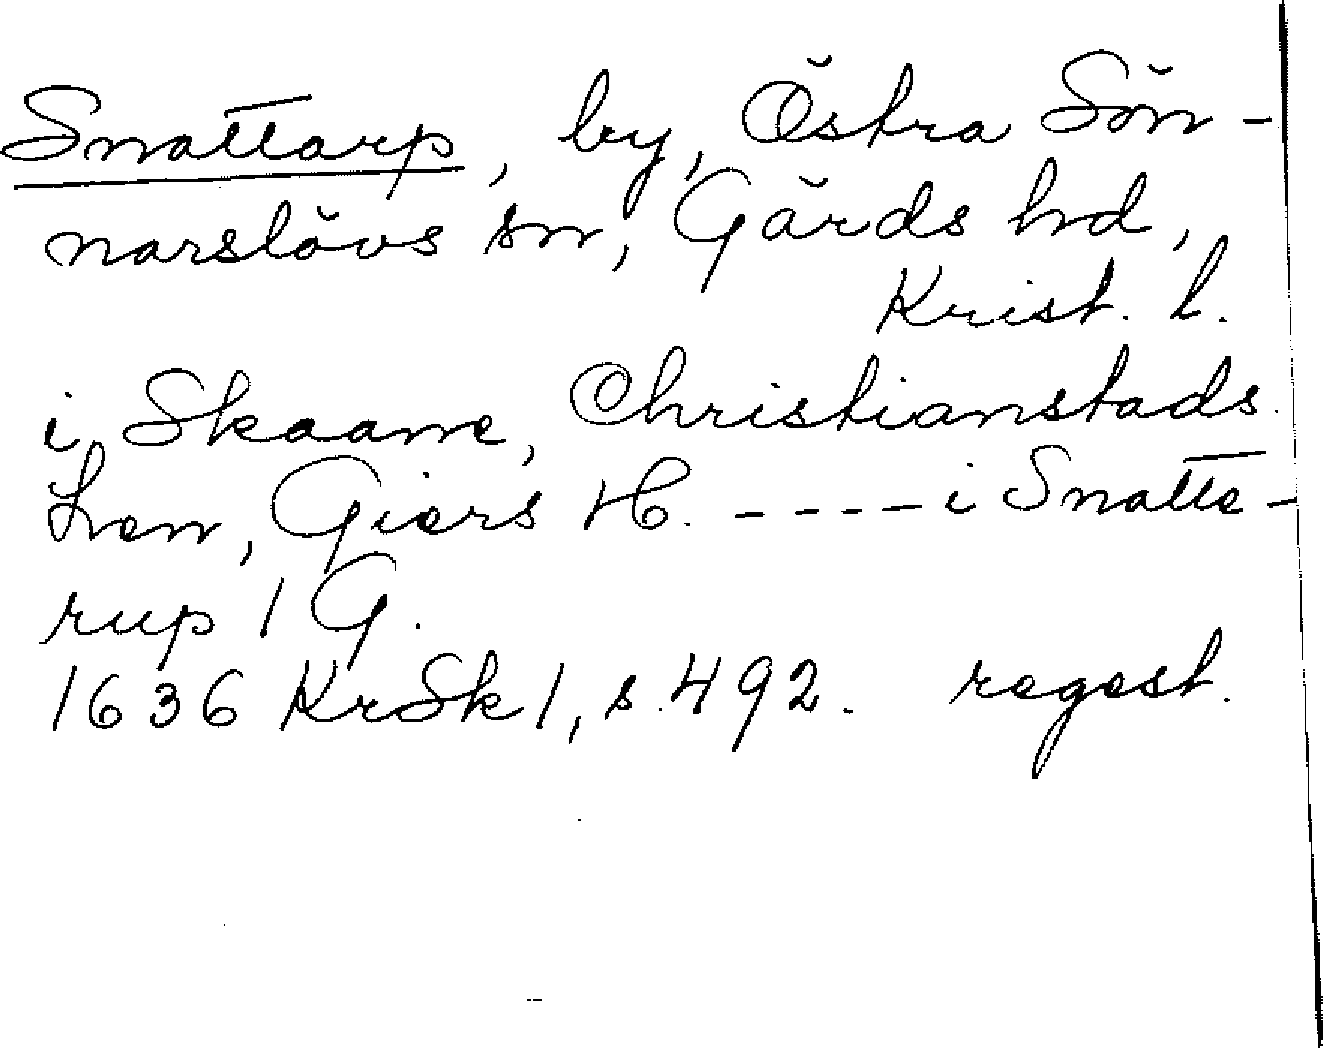 Snattarp, by, Östra Sön-
narslövs sn, Gärds hd,
Krist. l.
i Skaane, Christianstads
Len, Giers H. ---- i Snatte-
rup 1 G.
1636 KrSk 1, s. 492. regest.